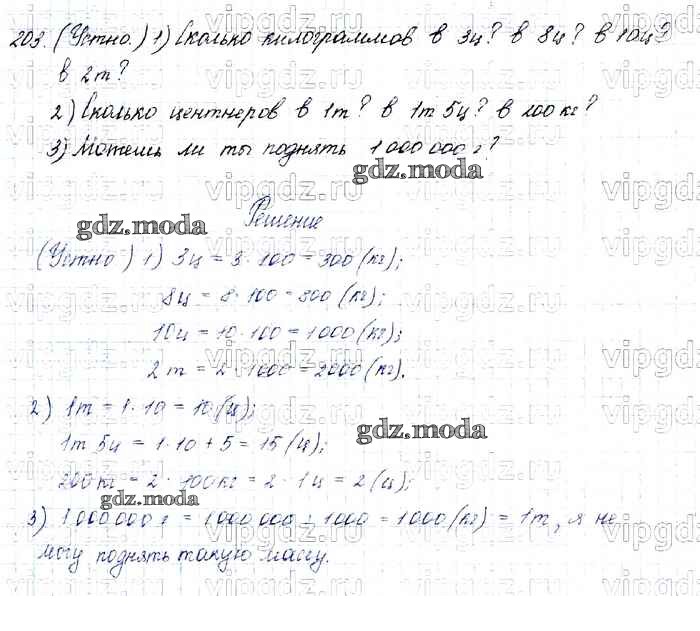 203. (Устно.) 1) Сколько килограммов в 3ц? в 8ц? в 10ц?
в 2т?
2) Сколько центнеров в 1т? в 1т 5ц? в 200кг?
3) Можешь ли ты поднять 1 000 000 г?
gdz.moda
gdz.moda
Решение
(Устно) 1) 3ц = 3 · 100 = 300 (кг);
8ц = 8 · 100 = 800 (кг);
10ц = 10 · 100 = 1000 (кг);
2т = 2 · 1000 = 2000 (кг).
2) 1т = 1 · 10 = 10 (ц);
gdz.moda
1т 5ц = 1 · 10 + 5 = 15 (ц);
200кг = 2 · 100кг = 2 · 1ц = 2 (ц);
gdz.moda
3) 1 000 000 г = 1 000 000 : 1000 = 1000 (кг) = 1т, я не
могу поднять такую массу.
vipgdz.ru